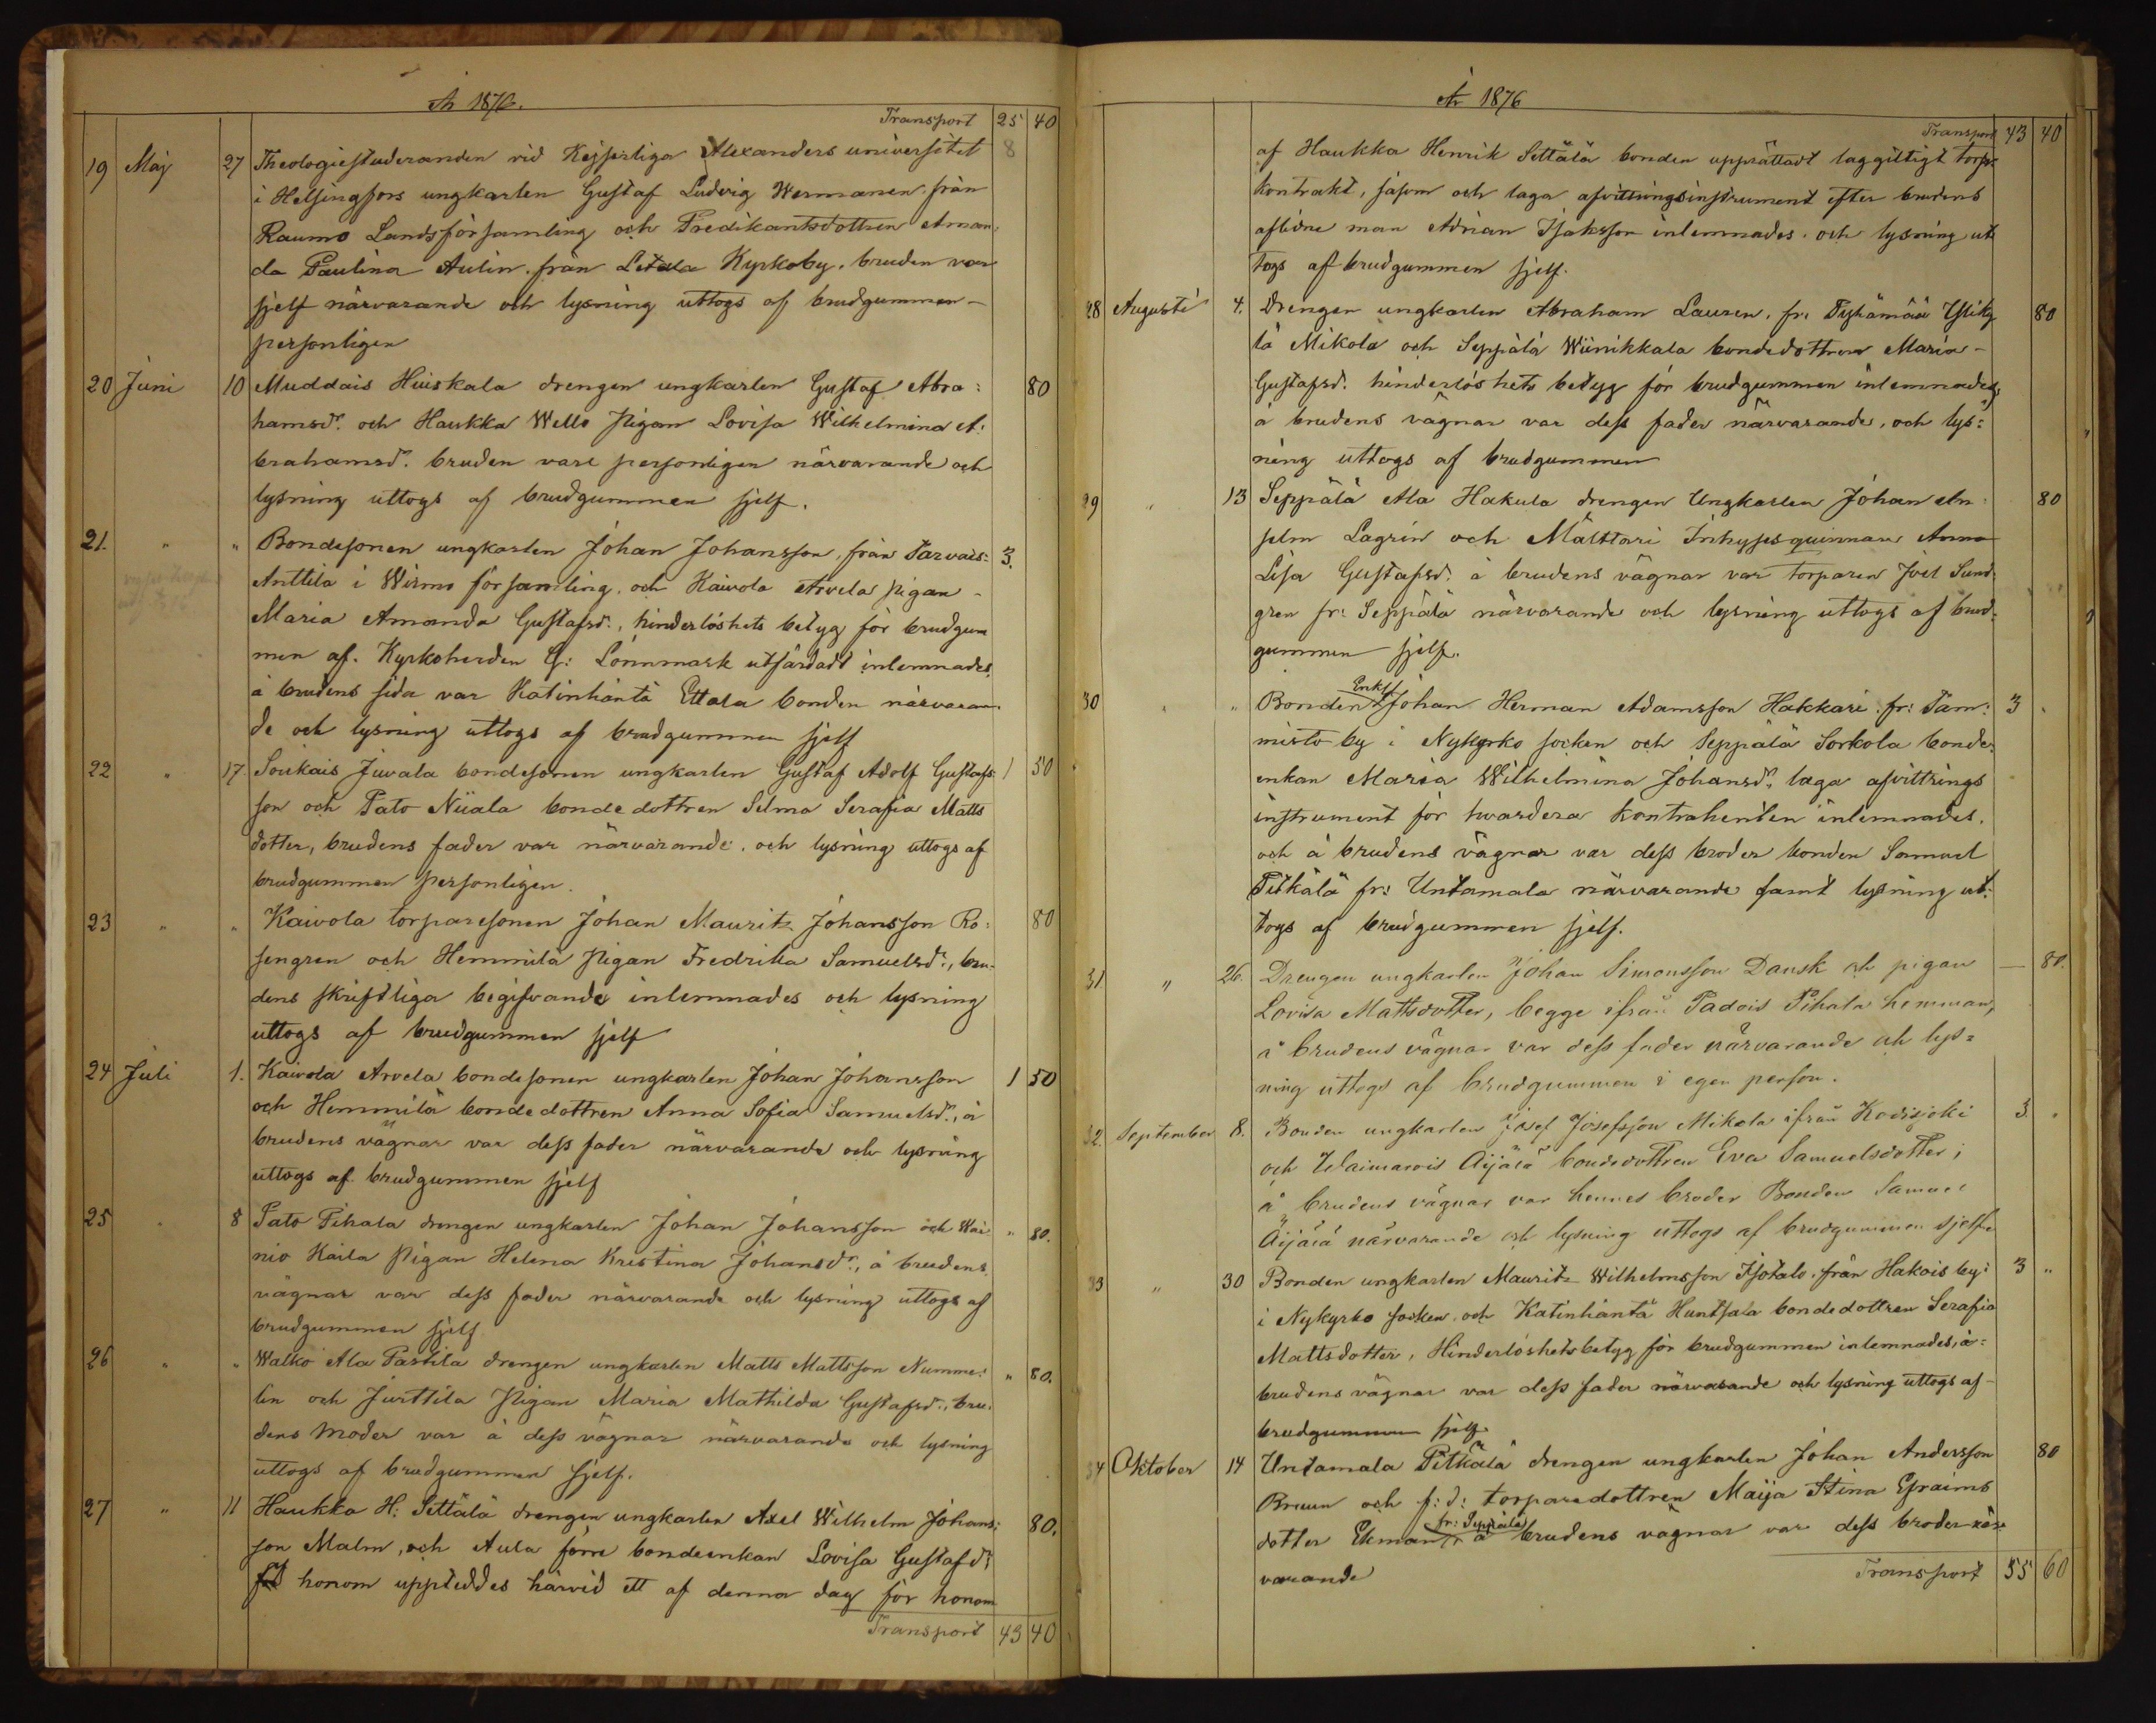 År 1876.
Transport 25 40
19 Maj 27 Theologiestuderanden vid Kejserliga Alexanders universitet 8
i Helsingfors ungkarlen Gustaf Ludvig Wermanen från
Raumo Landsförsamling och Predikantsdottren Aman-
da Paulina Aulin från Letala Kyrkoby. bruden var
sjelf närvarande och lysning uttogs af brudgummen
personligen
20 Juni 10 Muddais Huiskala drengen ungkarlen Gustaf Abra: 80
hamsd:r och Haukka Wello Pigan Lovisa Wilhelmina A:
brahamsd:r bruden vare personligen närvarande och
lysning uttogs af brudgummen sjelf.
21. " " Bondesonen ungkarlen Johan Johansson, från Tarvais: 3.
Anttila i Wirmo församling. och Kaivola Arvela pigan
Maria Amanda Gustafsd:r, hinderlöshets betyg för brudgum
men af Kyrkoherden G: Lönnmark utfärdadt inlemnades,
å brudens sida var Katinhäntä Ettala bonden närvaran
de och lysning uttogs af brudgummen sjelf
22 " 17 Soukais Juvala bondesonen ungkarlen Gustaf Adolf Gustafs: 1 50
son och Pato Niiala bondedottren Selma Serafia Matts
dotter, brudens fader var närvarande. och lysning uttogs af
brudgummen personligen.
23 " " Kaivola torparesonen Johan Mauritz Johansson Ro: 80
sengren och Hemmilä Pigan Fredrika Samuelsd:r, bru-
dens skriftliga begifvande inlemnades och lysning
uttogs af brudgummen sjelf
24 Juli 1. Kaivola Arvela bondesonen ungkarlen Johan Johansson 1 50
och Hemmilä bondedottren Anna Sofia Samuelsd:r, å
brudens vägnar var dess fader närvarande och lysning
uttogs af brudgummen sjelf
25 " 8 Pato Pihala drengen ungkarlen Johan Johansson och Wai " 80.
nio Kaila Pigan Helena Kristina Johansd:r, å brudens
vägnar var dess fader närvarande och lysning uttogs af
brudgummen sjelf
26 " " Walko Ala Pastila drengen ungkarlen Matts Mattsson Numme: " 80.
lin och Jurttila Pigan Maria Mathilda Gustafsd:r, bru.
dens Moder var å dess vägnar närvarande och lysning
uttogs af brudgummen sjelf.
27 " 11 Haukka H: Settälä drengen ungkarlen Axel Wilhelm Johans: 80.
son Malm, och Aula förre bondeenkan Lovisa Gustafsd:r
af honom uppteddes härvid ett af denna dag för honom
Transport 43 40
År 1876
Transport 43 40
af Haukka Henrik Settälä bonden upprättadt laggiltigt torp-
kontrakt, såsom och laga afvittringsinstrument efter brudens
aflidne man Adrian Isaksson inlemnades. och lysning ut
togs af brudgummen sjelf.
28 Augusti 4. Drengen ungkarlen Abraham Lauren, fr: Pyhämaa 80
lä Mikola och Seppälä Wiinikkala bondedottren Maria
Gustafsd:r hinderlöshets betyg för brudgummen inlemnades
å brudens vägnar var dess fader närvarande, och lys:
ning uttogs af brudgummen
29 " 13 Seppälä Ala Hakula drengen Ungkarlen Johan An 80
selm Lagrén och Mälttäri Inhysesquinnan Anna
Lisa Gustafsd:r å brudens vägnar var torparen Joel Sund
gren fr: Seppälä närvarande och lysning uttogs af brud
gummen sjelf.
30 " " Bonden Enkl. Johan Herman Adamsson Hakkari. fr: Tam: 3 "
misto by i Nykyrko socken och Seppälä Sorkola bonde
enkan Maria Wilhelmina Johansd:r, laga afvittrings
instrument för hvardera kontrahenten inlemnades.
och å brudens vägnar var dess broder bonden Samuel
Pitkälä fr: Untamala närvarande samt lysning ut:
togs af brudgummen sjelf.
31 " 26. Drengen ungkarlen Johan Simonsson Dansk och pigan — 80.
Lovisa Mattsdotter, begge ifrån Padois Pihala hemman,
å brudens vägnar var dess fader närvarande och lys=
ning uttogs af brudgummen i egen person.
32. September 8. Bonden ungkarlen Josef Josefsson Mikola ifrån Kodisjoki 3 "
och Waimarois Äijälä bondedottren Eva Samuelsdotter;
å brudens vägnar var hennes broder Bonden Samuel
Äijälä närvarande och lysning uttogs af brudgummen sjelf.
33 " 30 Bonden ungkarlen Mauritz Wilhelmsson Isotalo. från Hakois by: 3 "
i Nykyrko socken. och Katinhäntä Huntsala bondedottren Serafia
Mattsdotter, Hinderlöshetsbetyg för brudgummen inlemnades, å:
brudens vägnar var dess fader närvarande och lysning uttogs af
brudgummen sjelf
34 Oktober 14 Untamala Pitkälä drengen ungkarlen Johan Andersson 80
Bruun och f: d: torparedottren Maija Stina Efraims
dotter Ekman fr: Seppälä å brudens vägnar var dess broder när-
varande
Transport 55 60